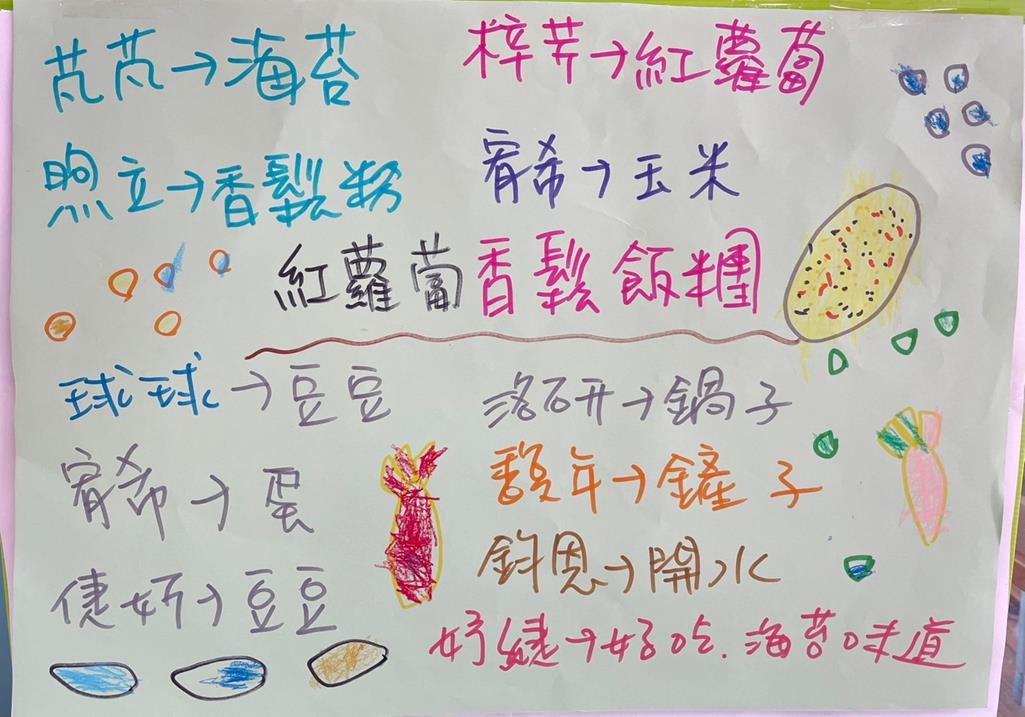 芃芃→海苔
梓芽→紅蘿蔔
煦立→香鬆粉
宥希→玉米
紅蘿蔔香鬆飯糰
球球→豆豆
洛研→鍋子
宥希→蛋
馥年→鏟子
倢妍→豆豆
鈞恩→開水
妤緁→好吃.海苔味道